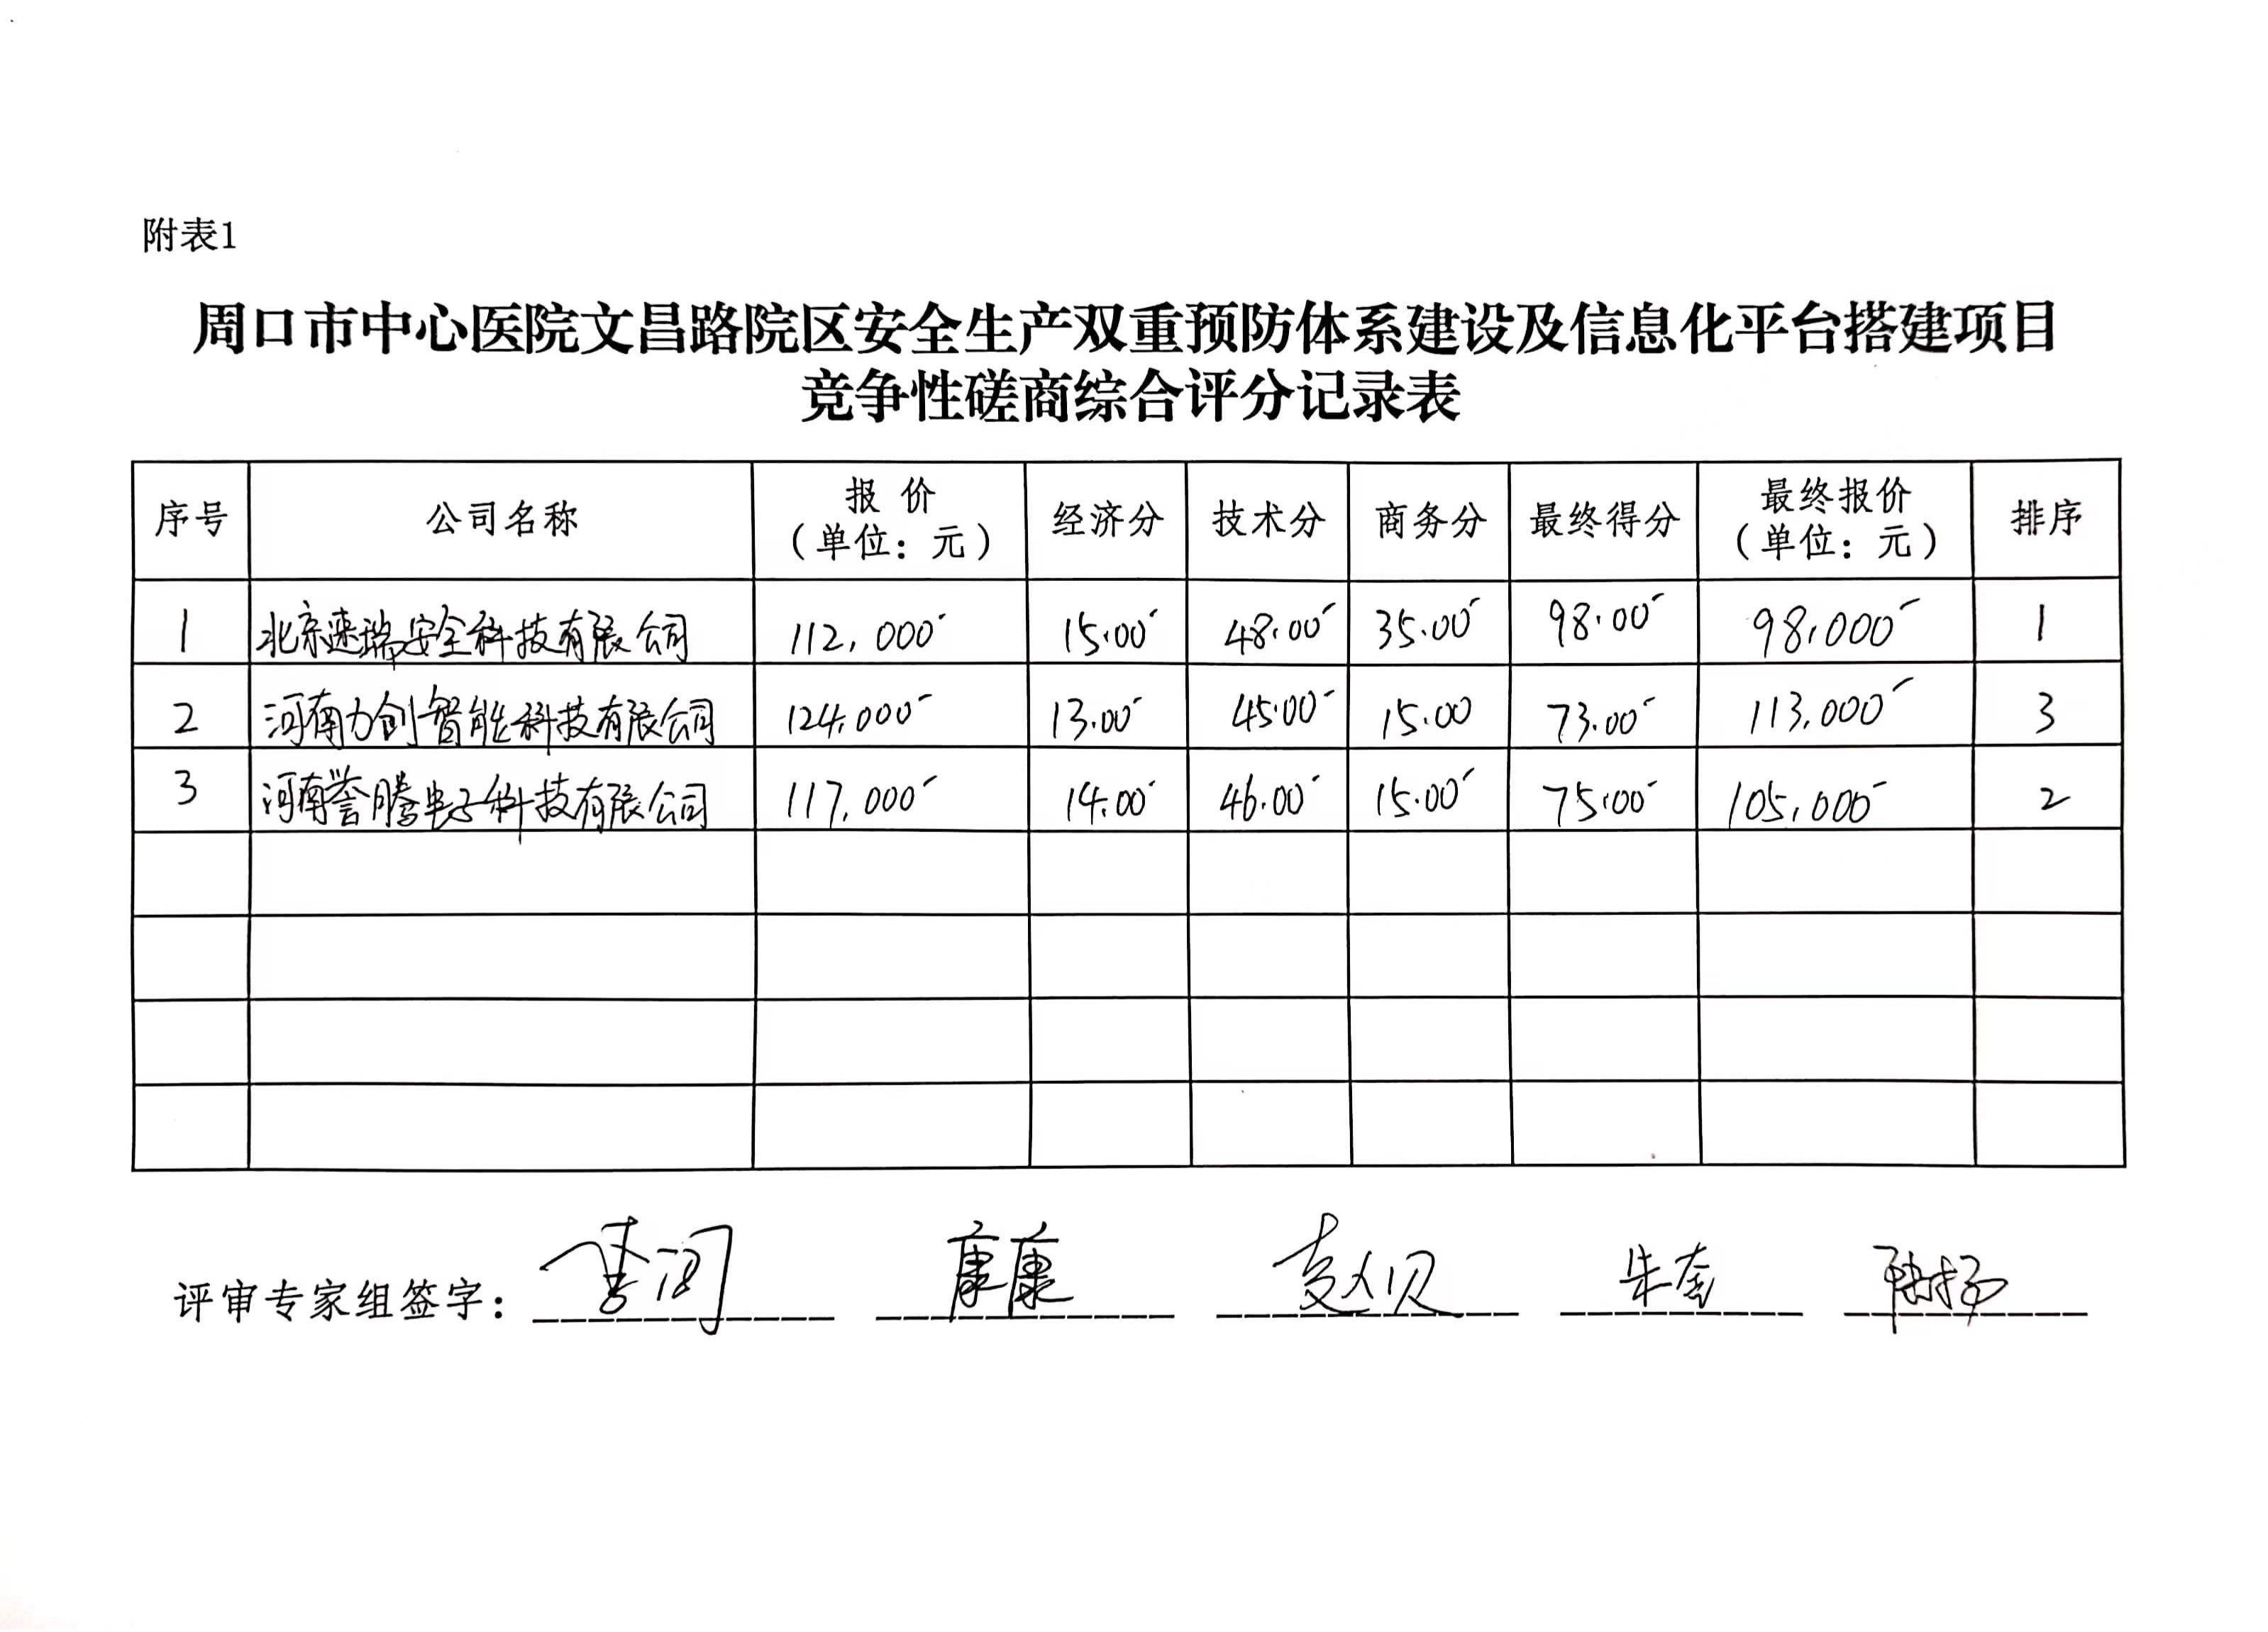 附表1
周口市中心医院文昌路院区安全生产双重预防体系建设及信息化平台搭建项目
竞争性磋商综合评分记录表
序号 公司名称 报价（单位：元） 经济分 技术分 商务分 最终得分 最终报价（单位：元） 排序
1 北京速瑞安全科技有限公司 112,000 15.00 48.00 35.00 98.00 98,000 1
2 河南力创智能科技有限公司 124,000 13.00 45.00 15.00 73.00 113,000 3
3 河南誉腾电子科技有限公司 117,000 14.00 46.00 15.00 75.00 105,000 2
评审专家组签字： 康康 朱奎